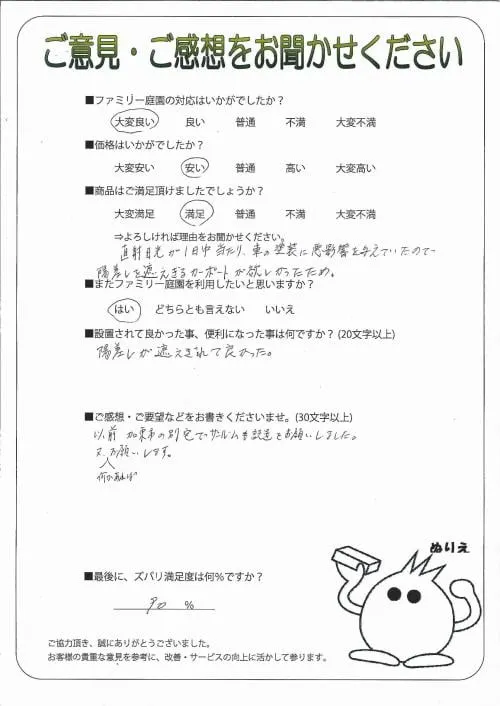 ご意見・ご感想をお聞かせください
■ファミリー庭園の対応はいかがでしたか？
大変良い 良い 普通 不満 大変不満
■価格はいかがでしたか？
大変安い 安い 普通 高い 大変高い
■商品はご満足頂けましたでしょうか？
大変満足 満足 普通 不満 大変不満
⇒よろしければ理由をお聞かせください。
直射日光が1日中当たり、車の塗装に悪影響を与えていたので
陽差しを遮えぎるカーポートが欲しかったため。
■またファミリー庭園を利用したいと思いますか？
はい どちらとも言えない いいえ
■設置されて良かった事、便利になった事は何ですか？(20文字以上)
陽差しが遮えぎれて良かった。
■ご感想・ご要望などをお書きくださいませ。(30文字以上)
以前 加東市の別宅でサンルームも設置をお願いしました。
又お願いします。
何かあれば
■最後に、ズバリ満足度は何％ですか？
90 ％
ご協力頂き、誠にありがとうございました。
お客様の貴重な意見を参考に、改善・サービスの向上に活かして参ります。
ぬりえ